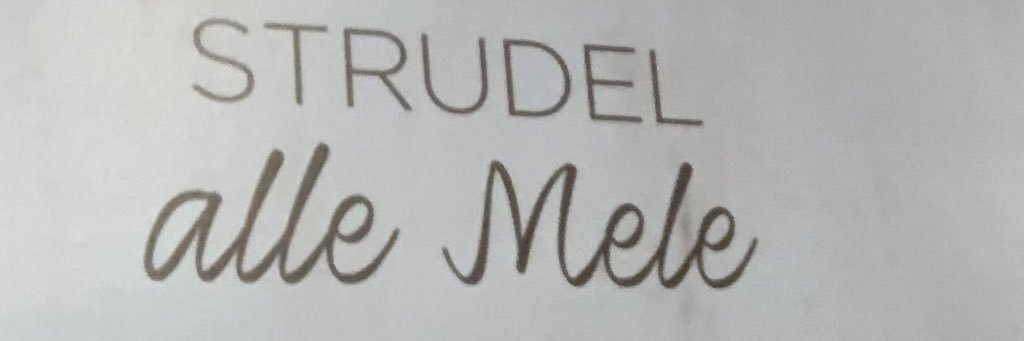 STRUDEL
alle Mele